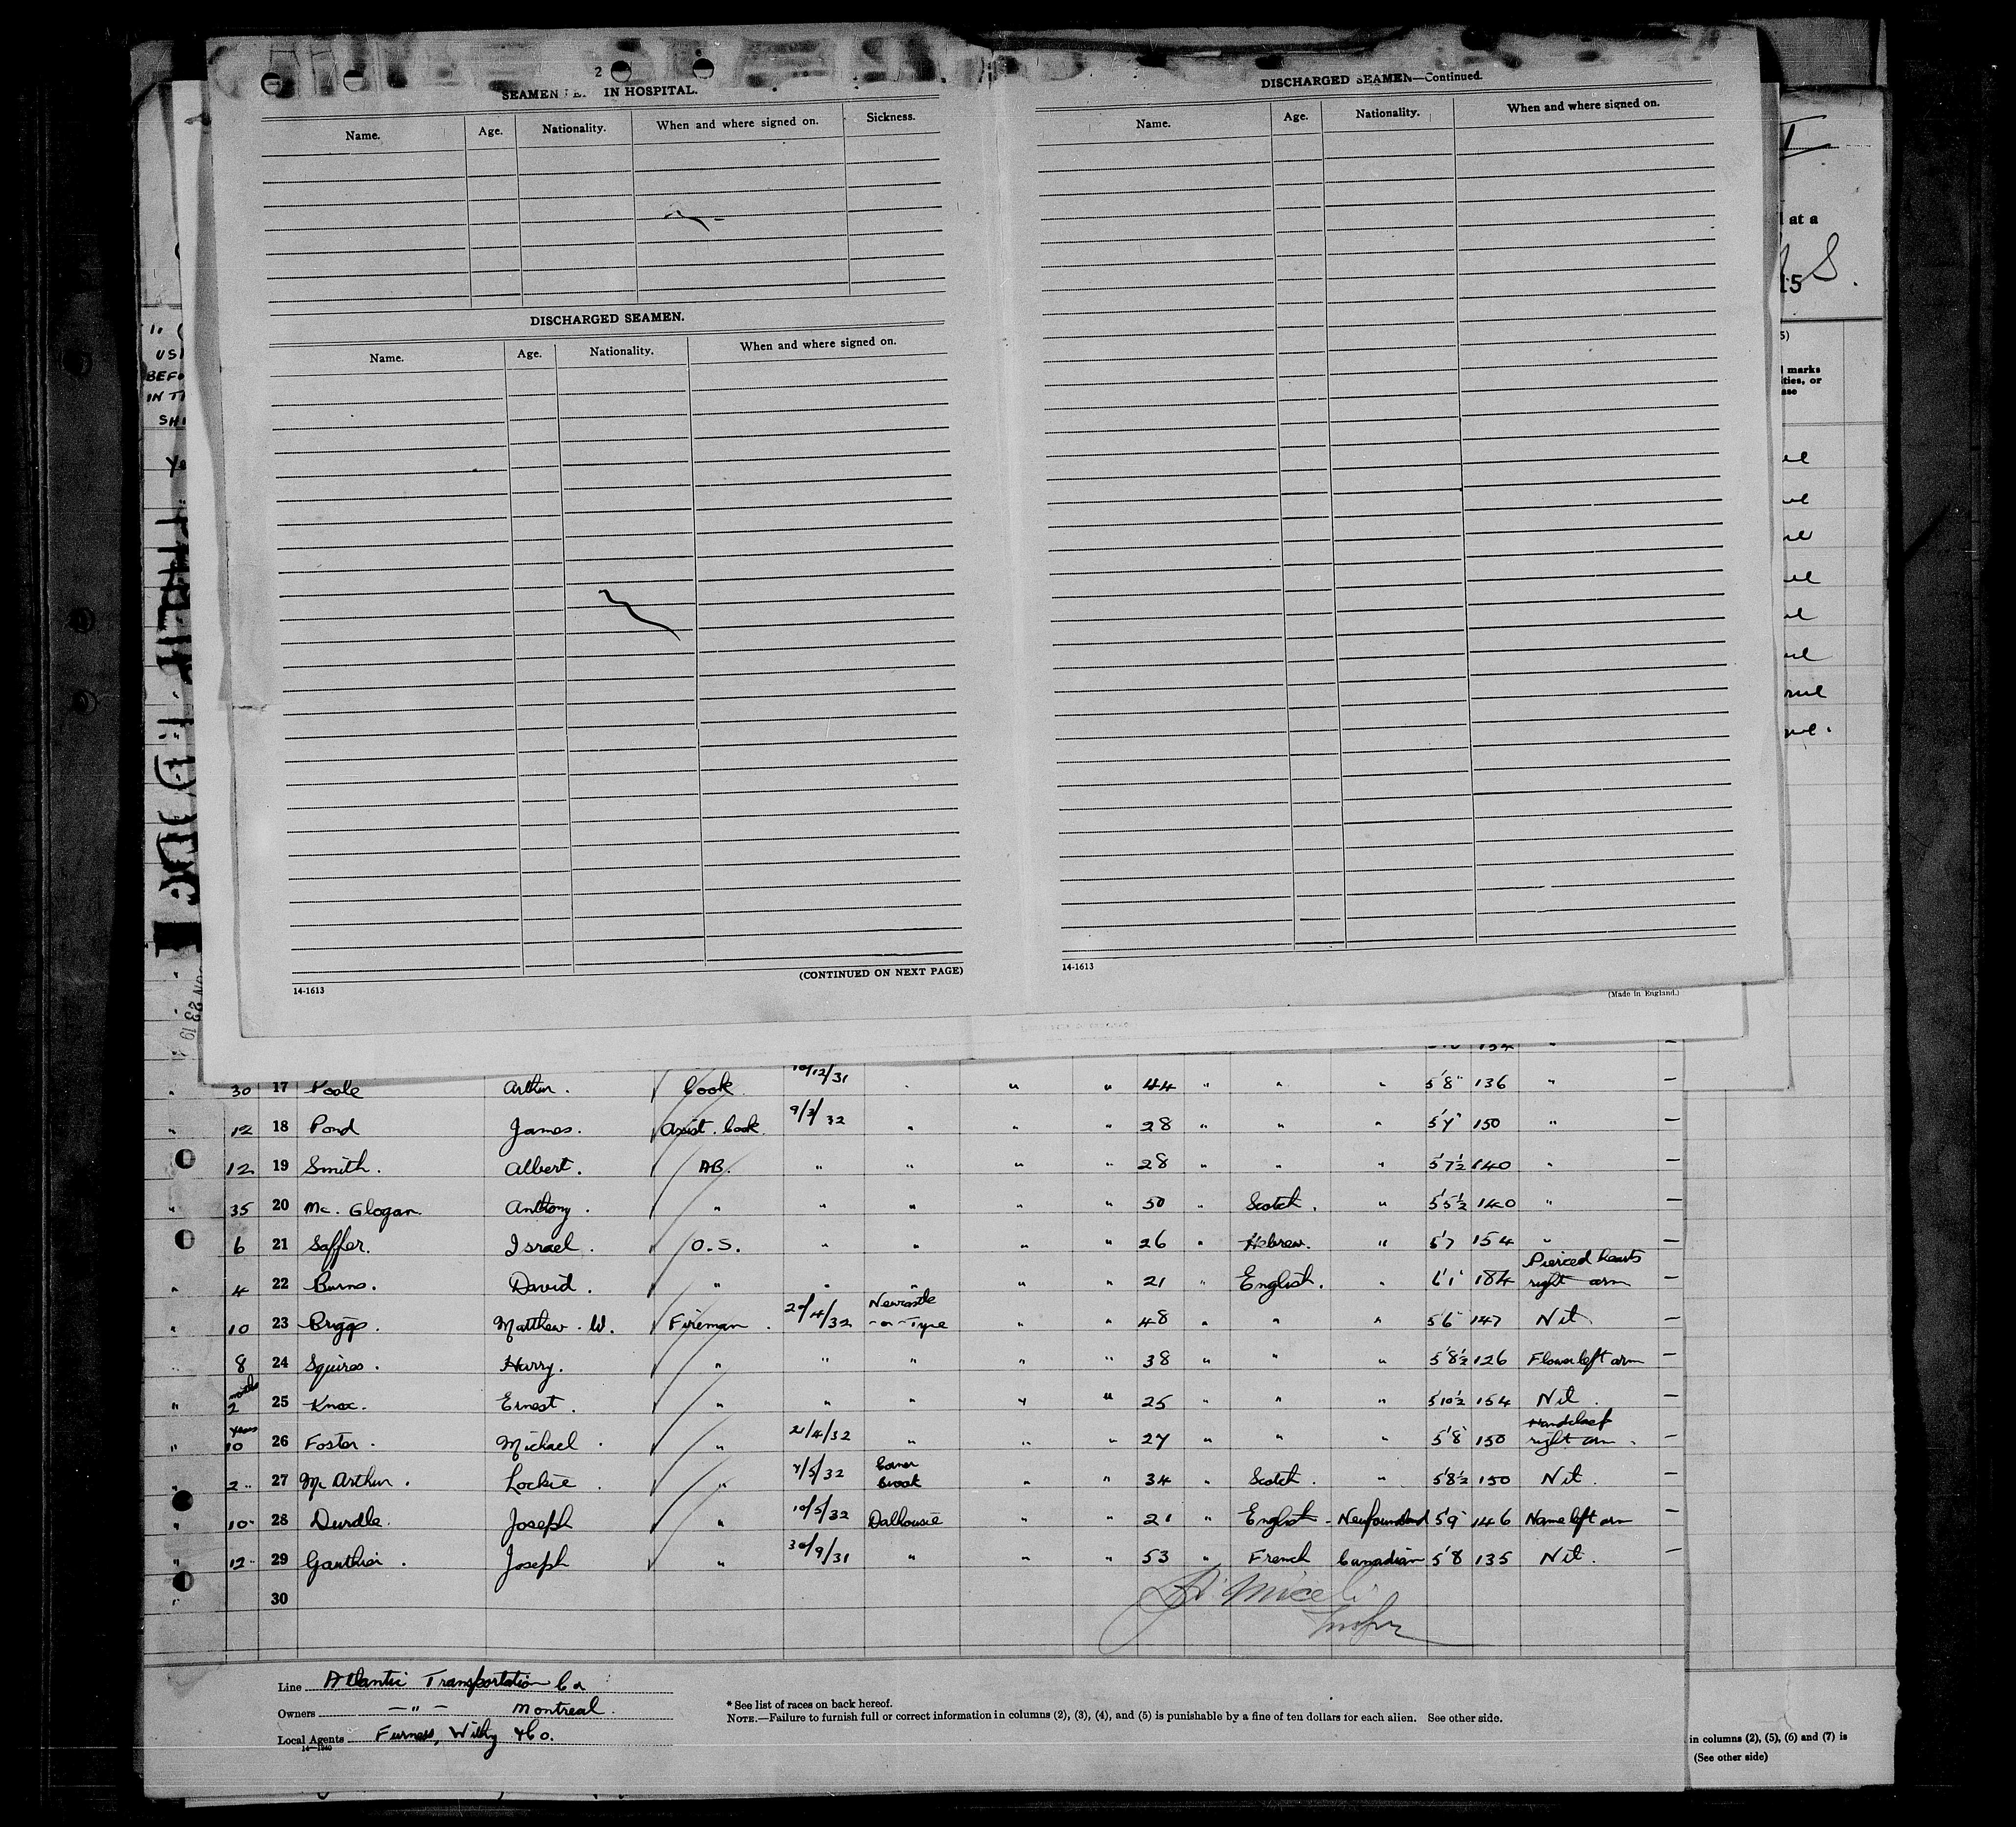 2
SEAMEN IN HOSPITAL.
Name. Age. Nationality. When and where signed on. Sickness.
DISCHARGED SEAMEN.
Name. Age. Nationality. When and where signed on.
(CONTINUED ON NEXT PAGE)
14-1613
DISCHARGED SEAMEN—Continued.
Name. Age. Nationality. When and where signed on.
14-1613
(Made in England.)
at a
15 S.
marks
ties, or
USI
BEFO
IN T
SHI
" 30 17 Poole Arthur. Cook 10/12/31 " " " 44 " " " 5'8" 136 " —
" 12 18 Pond James. Assist. Cook 9/3/32 " " " 28 " " " 5'7" 150 " —
12 19 Smith. Albert. AB. " " " " 28 " " " 5'7½ 140 " —
" 35 20 Mc. Glogan. Anthony. " " " " " 50 " Scotch. " 5'5½ 140 " —
6 21 Saffer. Israel. O.S. " " " " 26 " Hebrew. " 5'7 154 " —
" 4 22 Burns. David. " " " " " 21 " English. " 6'1" 184 Pierced hearts right arm —
" 10 23 Briggs. Matthew. W. Fireman. 20/4/32 Newcastle -on-Tyne " " 48 " " " 5'6" 147 Nil —
" 8 24 Squires. Harry. " " " " " 38 " " " 5'8½ 126 Flower left arm —
" months 2 25 Knox. Ernest. " " " " " 25 " " " 5'10½ 154 Nil. —
" years 10 26 Foster. Michael. " 21/4/32 " " " 27 " " " 5'8 150 Handclasp right arm. —
" 2 " 27 Mc Arthur. Lockie. " 4/5/32 Corner Brook " " 34 " Scotch. " 5'8½ 150 Nil. —
" 10 " 28 Durdle. Joseph " 10/5/32 Dalhousie " " 21 " English - Newfoundland 5'9" 146 Name left arm —
" 12 " 29 Gauthier. Joseph " 30/9/31 " " " 53 " French Canadian 5'8 135 Nil. —
30
Miceli
Line Atlantic Transportation Co
Owners —"— Montreal.
Local Agents Furness, Withy & Co.
14—1240
* See list of races on back hereof.
NOTE.—Failure to furnish full or correct information in columns (2), (3), (4), and (5) is punishable by a fine of ten dollars for each alien. See other side.
in columns (2), (5), (6) and (7) is
(See other side)